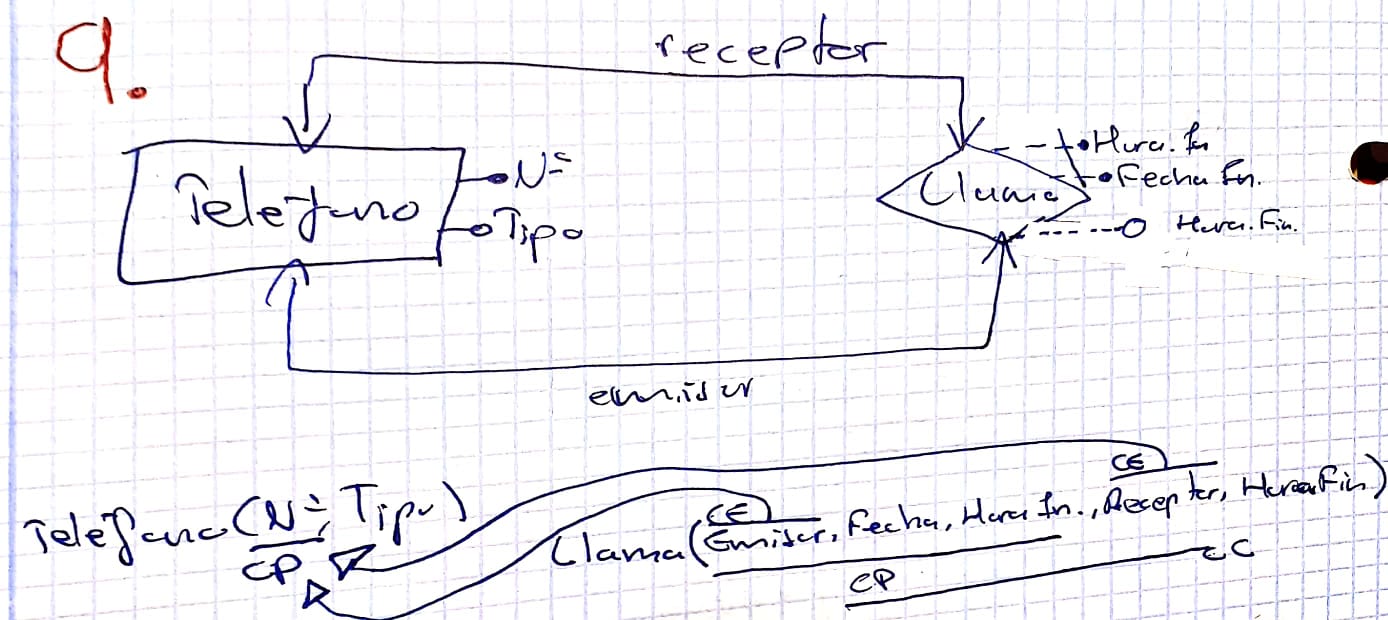 9.
receptor
Telefono
Nº
Tipo
Llama
Hora In
Fecha In.
Hora.Fin.
emisor
Telefono (Nº, Tipo)
CP
CE
CE
Llama (Emisor, Fecha, Hora In., Receptor, Hora Fin)
CP